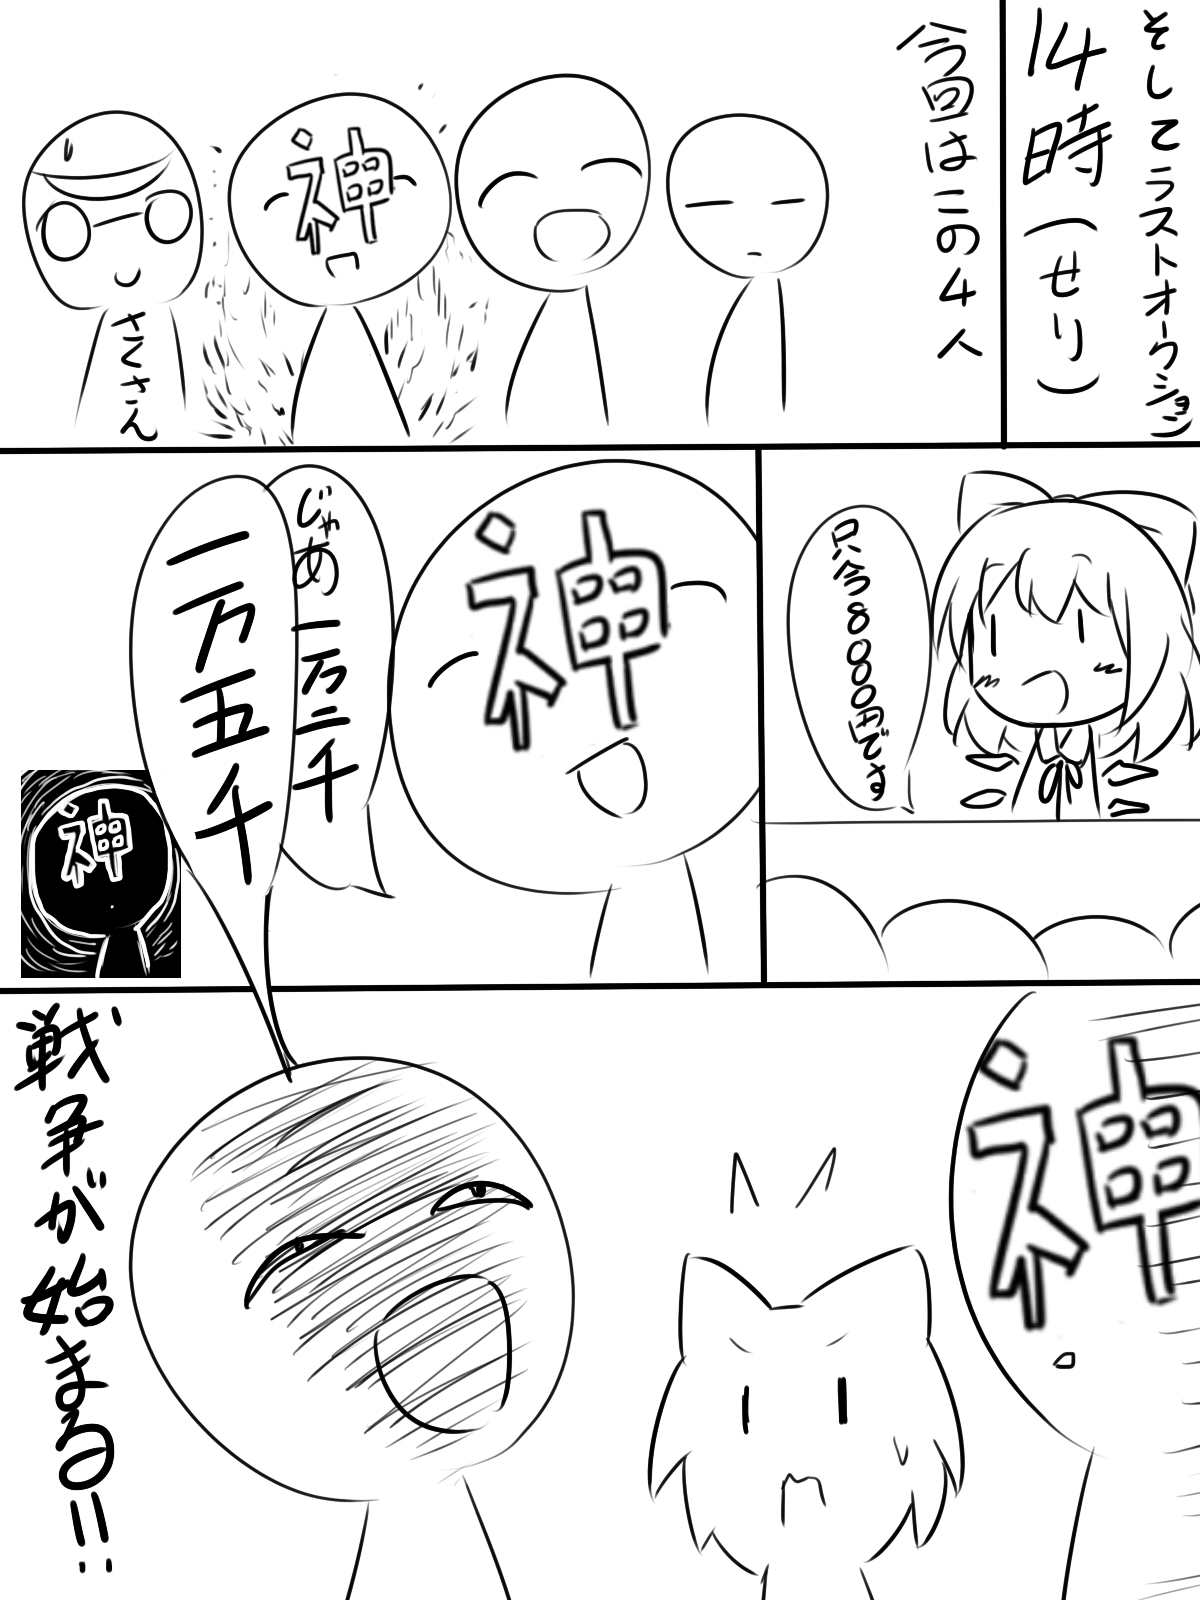 そしてラストオークション
14時(せり)
今回はこの4人
神
さくさん
只今8000円です
神
じゃあ一万二千
一万五千
神
神
戦争が始まる!!